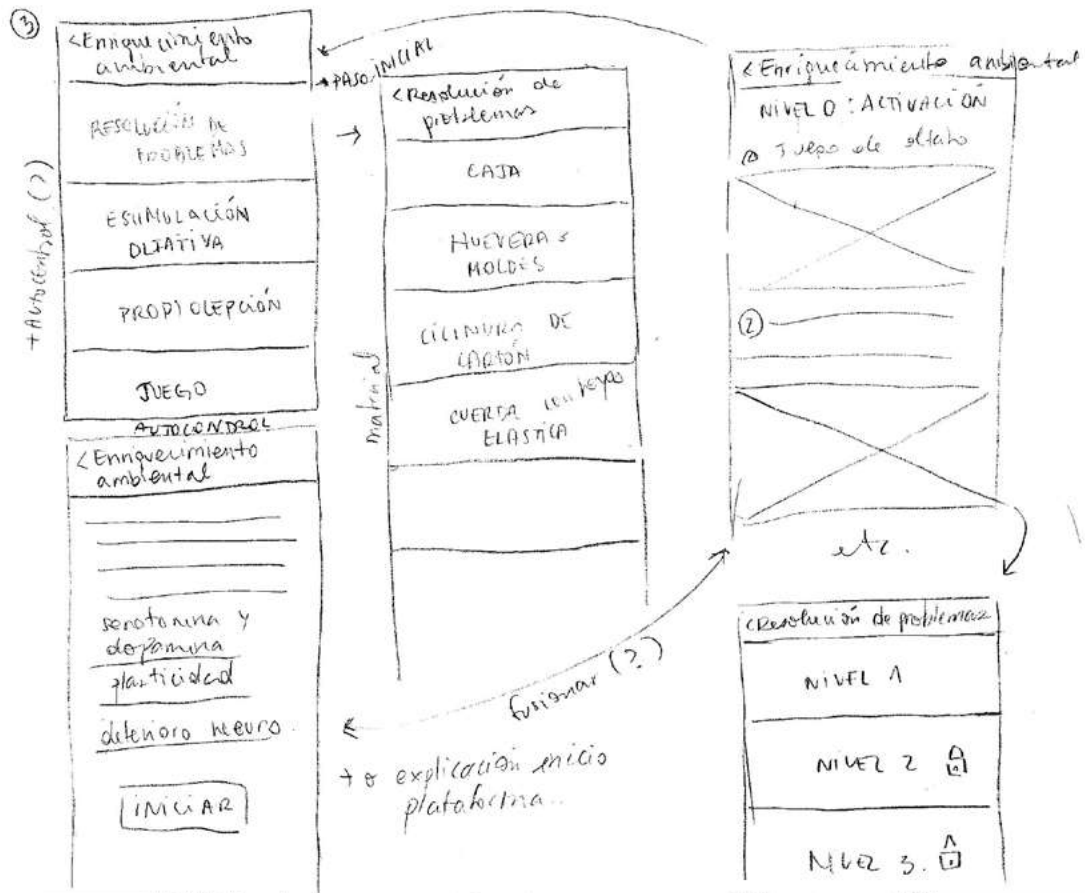 ③
< Enriquecimiento
ambiental
RESOLUCIÓN DE
PROBLEMAS
ESIMULACIÓN
OLFATIVA
PROPIOCEPCIÓN
JUEGO
AUTOCONTROL
+ Autocontrol (?)
→ PASO INICIAL
< Enriquecimiento
ambiental
serotonina y
dopamina
plasticidad
deterioro neuro.
INICIAR
< Resolución de
problemas
CAJA
HUEVERAS
MOLDES
CILINDRO DE
CARTÓN
CUERDA
ELASTICA
material
fusionar (?)
+ o explicación inicio
plataforma..
< Enriquecimiento ambiental
NIVEL 0 : ACTIVACIÓN
Juego de olfato
②
etc.
< Resolución de problemas
NIVEL 1
NIVEL 2
NIVEL 3.